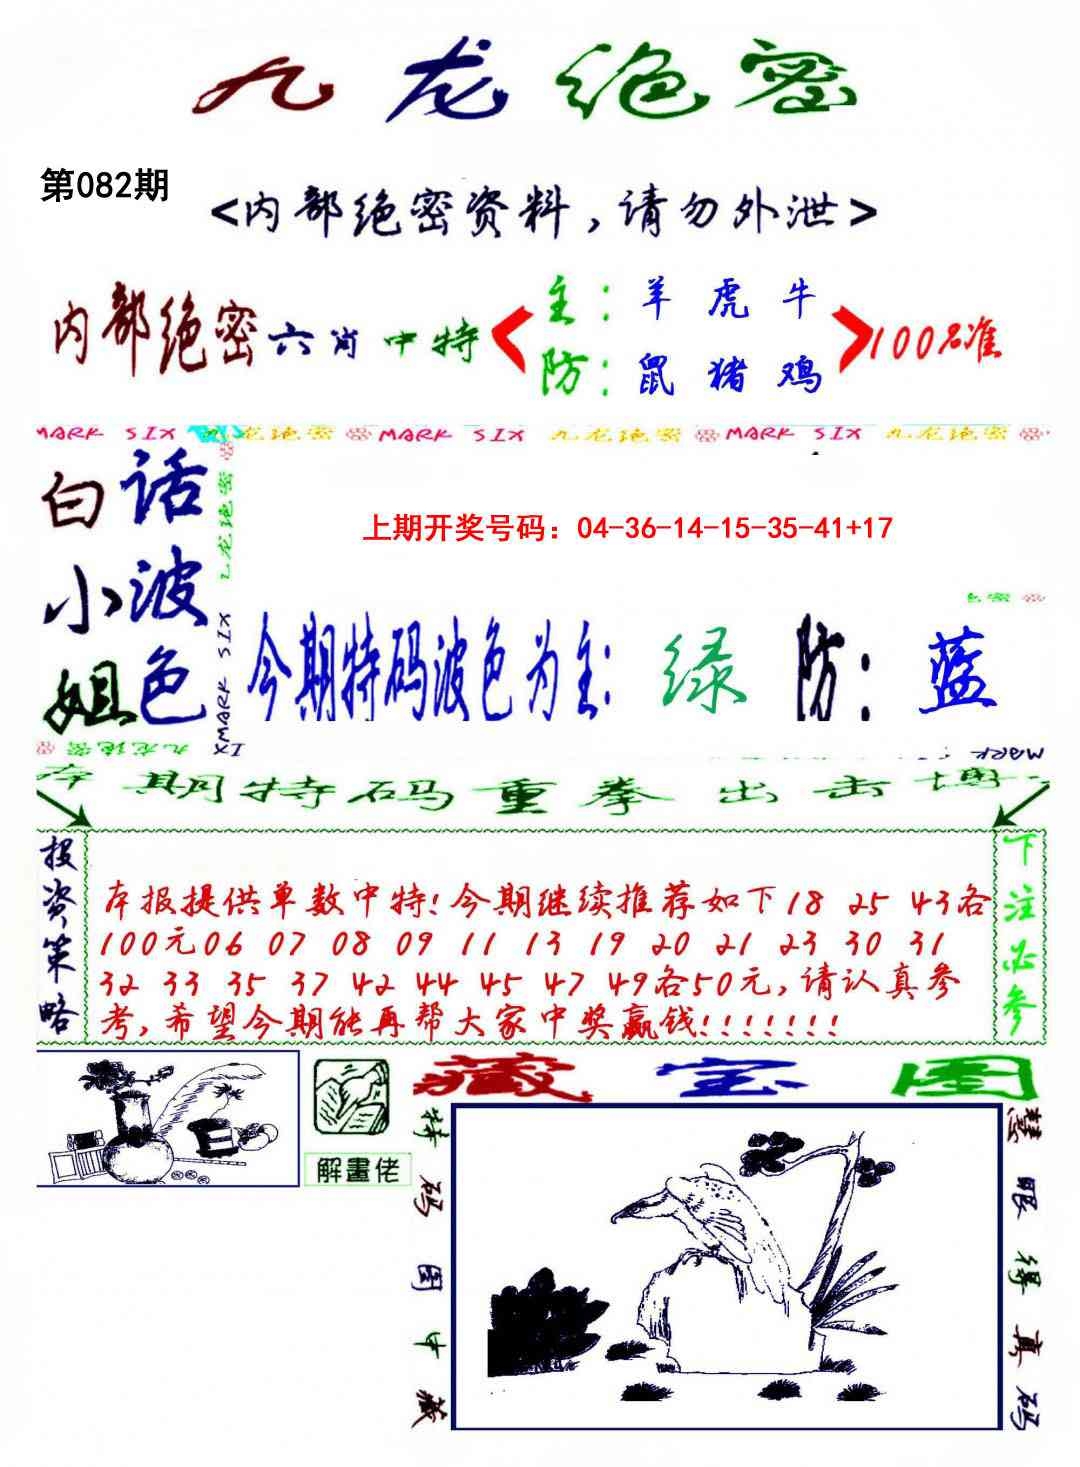 九龙绝密
第082期
<内部绝密资料,请勿外泄>
内部绝密六肖中特
主:羊 虎 牛
防:鼠 猪 鸡
100%准
MARK SIX 九龙绝密 MARK SIX 九龙绝密 MARK SIX 九龙绝密
白小姐
话波色
九龙绝密
MARK SIX
上期开奖号码：04-36-14-15-35-41+17
今期特码波色为主:绿 防:蓝
九龙绝密
MARK
本期特码重拳出击博
投资策略
本报提供单数中特!今期继续推荐如下18 25 43各
100元06 07 08 09 11 13 19 20 21 23 30 31
32 33 35 37 42 44 45 47 49各50元,请认真参
考,希望今期能再帮大家中奖赢钱!!!!!!!
下注必参
解畫佬
藏宝图
特码图中藏
慧眼得真码